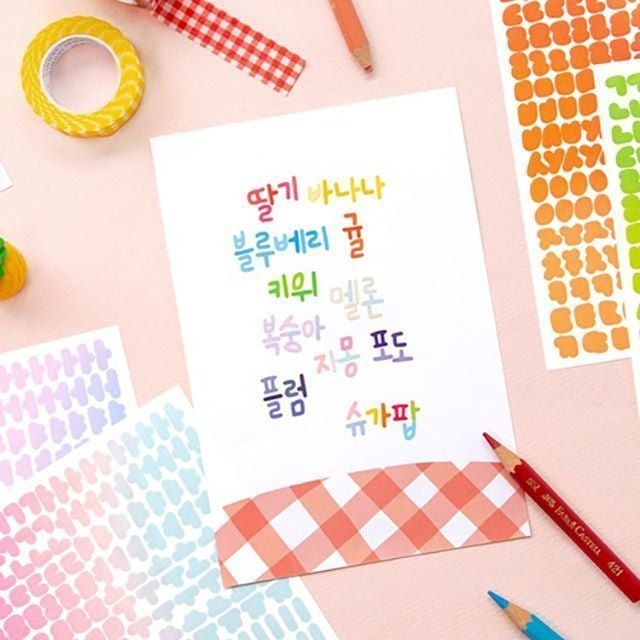 딸기 바나나
블루베리 귤
키위 멜론
복숭아
자몽 포도
플럼
슈가팝
FABER-CASTELL 421